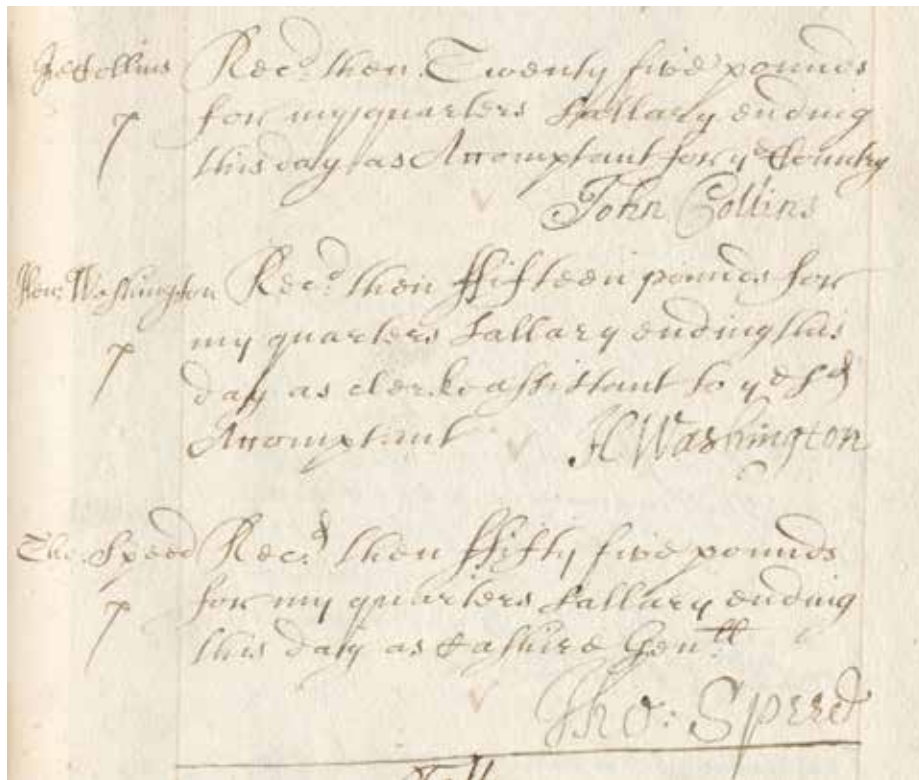 Jo Collins Rec:d then Twenty five pounds
for my quarters Sallary ending
this day as Accomptant for ye Country
John Collins
Hen: Washington Rec:d then ffifteen pounds for
my quarters Sallary ending this
day as clerk assistant to ye sd
Accomptant
H Washington
Tho. Speed Rec:d then ffifty five pounds
for my quarters Sallary ending
this day as Cashire Genll
Tho: Speed